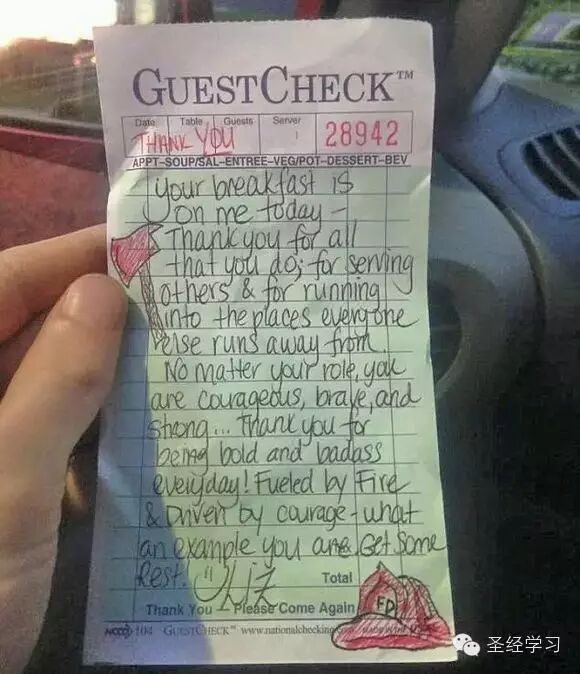 GUESTCHECK™
Date Table Guests Server
THANK YOU
28942
APPT-SOUP/SAL-ENTREE-VEG/POT-DESSERT-BEV
your breakfast is
on me today -
Thank you for all
that you do; for serving
others & for running
into the places everyone
else runs away from.
No matter your role, you
are courageous, brave, and
strong... Thank you for
being bold and badass
everyday! Fueled by Fire
& Driven by courage - what
an example you are. Get some
Rest. Liz
Total
FD
Thank You Please Come Again
NCCO 104 GUESTCHECK™ www.nationalchecking
圣经学习